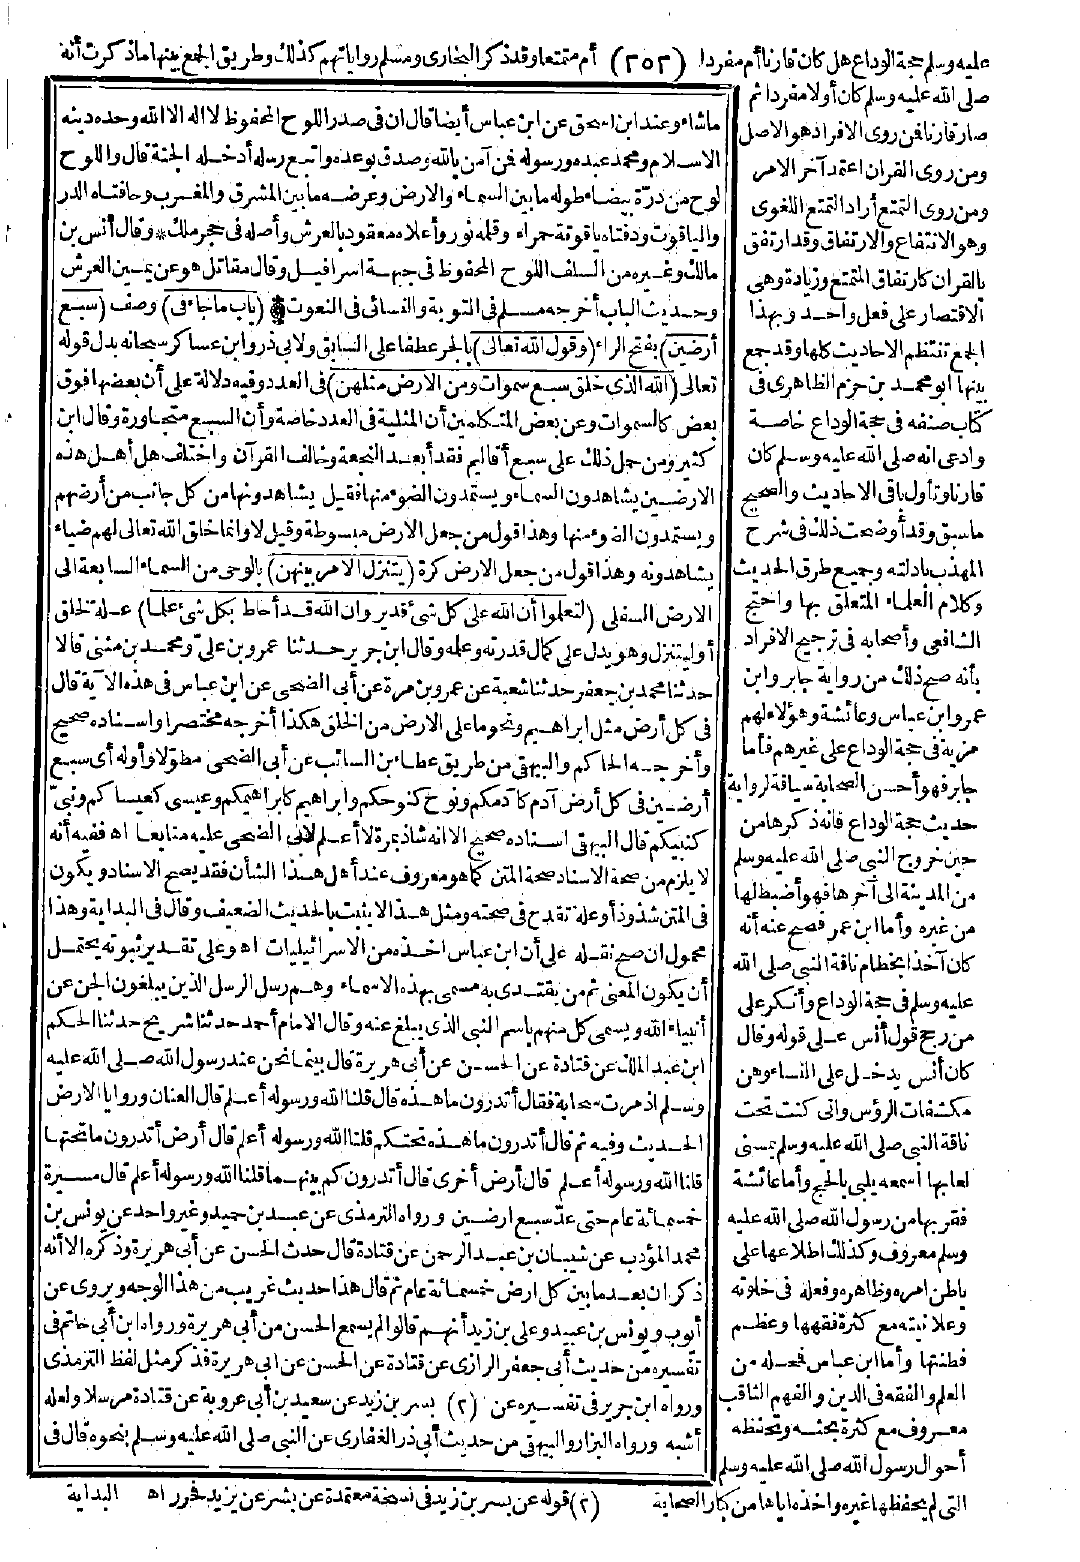 عليه وسلم حجة الوداع هل كان قارنا أم مفردا (٢٥٢) أم متمتعا وقد ذكر البخارى ومسلم رواياتهم كذلك وطريق الجمع بينها ماذكرت أنه
صلى الله عليه وسلم كان أولا مفردا ثم
صار قارنا فمن روى الافراد هو الاصل
ومن روى القران اعتمد آخر الامر
ومن روى التمتع أراد التمتع اللغوى
وهو الانتفاع والارتفاق وقد ارتفق
بالقران كارتفاق المتمتع وزيادة وهى
الاقتصار على فعل واحد وبهذا
الجمع تنتظم الاحاديث كلها وقد جمع
بينها أبو محمد بن حزم الظاهرى فى
كتاب صنفه فى حجة الوداع خاصة
وادعى انه صلى الله عليه وسلم كان
قارنا وتأول باقى الاحاديث والصحيح
ماسبق وقد أوضحت ذلك فى شرح
المهذب بادلته وجميع طرق الحديث
وكلام العلماء المتعلق بها واحتج
الشافعى وأصحابه فى ترجيح الافراد
بأنه صح ذلك من رواية جابر وابن
عمر وابن عباس وعائشة وهؤلاء لهم
مزية فى حجة الوداع على غيرهم فأما
جابر فهو أحسن الصحابة سياقة لرواية
حديث حجة الوداع فانه ذكرها من
حين خروج النبى صلى الله عليه وسلم
من المدينة الى آخرها فهو أضبط لها
من غيره وأما ابن عمر فصح عنه أنه
كان آخذا بخطام ناقة النبى صلى الله
عليه وسلم فى حجة الوداع وأنكر على
من رجح قول أنس على قوله وقال
كان أنس يدخل على النساء وهن
مكشفات الرؤس وانى كنت تحت
ناقة النبى صلى الله عليه وسلم يمسنى
لعابها أسمعه يلبى بالحج وأما عائشة
فقربها من رسول الله صلى الله عليه
وسلم معروف وكذلك اطلاعها على
باطن امره وظاهره وفعله فى خلوته
وعلانيته مع كثرة فقهها وعظم
فطنتها وأما ابن عباس فمحله من
العلم والفقه فى الدين والفهم الثاقب
معروف مع كثرة بحثه وتحفظه
أحوال رسول الله صلى الله عليه وسلم
التى لم يحفظها غيره واخذه اياها من كبار الصحابة
ماشاء وعند ابن اسحق عن ابن عباس أيضا قال ان فى صدر اللوح المحفوظ لا اله الا الله وحده دينه
الاسلام ومحمد عبده ورسوله فمن آمن بالله وصدق بوعده واتبع رسله أدخله الجنة قال واللوح
لوح من درّة بيضاء طوله مابين السماء والارض وعرضه مابين المشرق والمغرب وحافتاه الدر
والياقوت ودفتاه ياقوتة حمراء وقلمه نور وأعلاه معقود بالعرش وأصله فى حجر ملك * وقال أنس بن
مالك وغيره من السلف اللوح المحفوظ فى جبهة اسرافيل وقال مقاتل هو عن يمين العرش
وحديث الباب أخرجه مسلم فى التوبة والنسائى فى النعوت * (باب ماجاء فى) وصف (سبع
أرضين) بفتح الراء (وقول الله تعالى) بالجر عطفا على السابق ولابى ذر وابن عساكر سبحانه بدل قوله
تعالى (الله الذى خلق سبع سموات ومن الارض مثلهن) فى العدد وفيه دلالة على أن بعضها فوق
بعض كالسموات وعن بعض المتكلمين أن المثلية فى العدد خاصة وأن السبع متجاورة وقال ابن
كثير ومن حمل ذلك على سبع أقاليم فقد أبعد النجعة وخالف القرآن واختلف هل أهل هذه
الارضين يشاهدون السماء ويستمدون الضوء منها فقيل يشاهدونها من كل جانب من أرضهم
ويستمدون الضوء منها وهذا قول من جعل الارض مبسوطة وقيل لا وانما خلق الله تعالى لهم ضياء
يشاهدونه وهذا قول من جعل الارض كرة (يتنزل الامر بينهن) بالوحى من السماء السابعة الى
الارض السفلى (لتعلموا أن الله على كل شئ قدير وان الله قد أحاط بكل شئ علما) علة لخلق
أو ليتنزل وهو يدل على كمال قدرته وعلمه وقال ابن جرير حدثنا عمرو بن على ومحمد بن مثنى قالا
حدثنا محمد بن جعفر حدثنا شعبة عن عمرو بن مرة عن أبى الضحى عن ابن عباس فى هذه الآية قال
فى كل أرض مثل ابراهيم ونحوما على الارض من الخلق هكذا أخرجه مختصرا واسناده صحيح
وأخرجه الحاكم والبيهقى من طريق عطاء بن السائب عن أبى الضحى مطوّلا وأوله أى سبع
أرضين فى كل أرض آدم كآدمكم ونوح كنوحكم وابراهيم كابراهيمكم وعيسى كعيساكم ونبىّ
كنبيكم قال البيهقى اسناده صحيح الا انه شاذ بمرة لا أعلم لابى الضحى عليه متابعا اه ففيه أنه
لا يلزم من صحة الاسناد صحة المتن كما هو معروف عند أهل هذا الشأن فقد يصح الاسناد ويكون
فى المتن شذوذ أو علة تقدح فى صحته ومثل هذا لا يثبت بالحديث الضعيف وقال فى البداية وهذا
محمول ان صح نقله على أن ابن عباس اخذه من الاسرائيليات اه وعلى تقدير ثبوته يحتمل
أن يكون المعنى ثم من يقتدى به مسمى بهذه الاسماء وهم رسل الرسل الذين يبلغون الجن عن
أنبياء الله ويسمى كل منهم باسم النبى الذى يبلغ عنه وقال الامام أحمد حدثنا شريح حدثنا الحكم
ابن عبد الملك عن قتادة عن الحسن عن أبى هريرة قال بينما نحن عند رسول الله صلى الله عليه
وسلم اذ مرت سحابة فقال أتدرون ماهذه قال قلنا الله ورسوله أعلم قال العنان وروايا الارض
الحديث وفيه ثم قال أتدرون ماهذه تحتكم قلنا الله ورسوله أعلم قال أرض أتدرون ماتحتها
قلنا الله ورسوله أعلم قال أرض أخرى قال أتدرون كم بينهما قلنا الله ورسوله أعلم قال مسيرة
خمسمائة عام حتى عدّ سبع ارضين ورواه الترمذى عن عبد بن حميد وغير واحد عن يونس بن
محمد المؤدب عن شيبان بن عبد الرحمن عن قتادة قال حدث الحسن عن أبى هريرة وذكره الا أنه
ذكر ان بعد مابين كل ارض خمسمائة عام ثم قال هذا حديث غريب من هذا الوجه ويروى عن
أيوب ويونس بن عبيد وعلى بن زيد أنهم قالوا لم يسمع الحسن من أبى هريرة ورواه ابن أبى حاتم فى
تفسيره من حديث أبى جعفر الرازى عن قتادة عن الحسن عن ابى هريرة فذكر مثل لفظ الترمذى
ورواه ابن جرير فى تفسيره عن (٢) بسر بن زيد عن سعيد بن أبى عروبة عن قتادة مرسلا ولعله
أشبه ورواه البزار والبيهقى من حديث أبى ذر الغفارى عن النبى صلى الله عليه وسلم بنحوه قال فى
(٢) قوله عن بسر بن زيد فى نسخة معتمدة عن بشر عن يزيد فحرر اه البداية